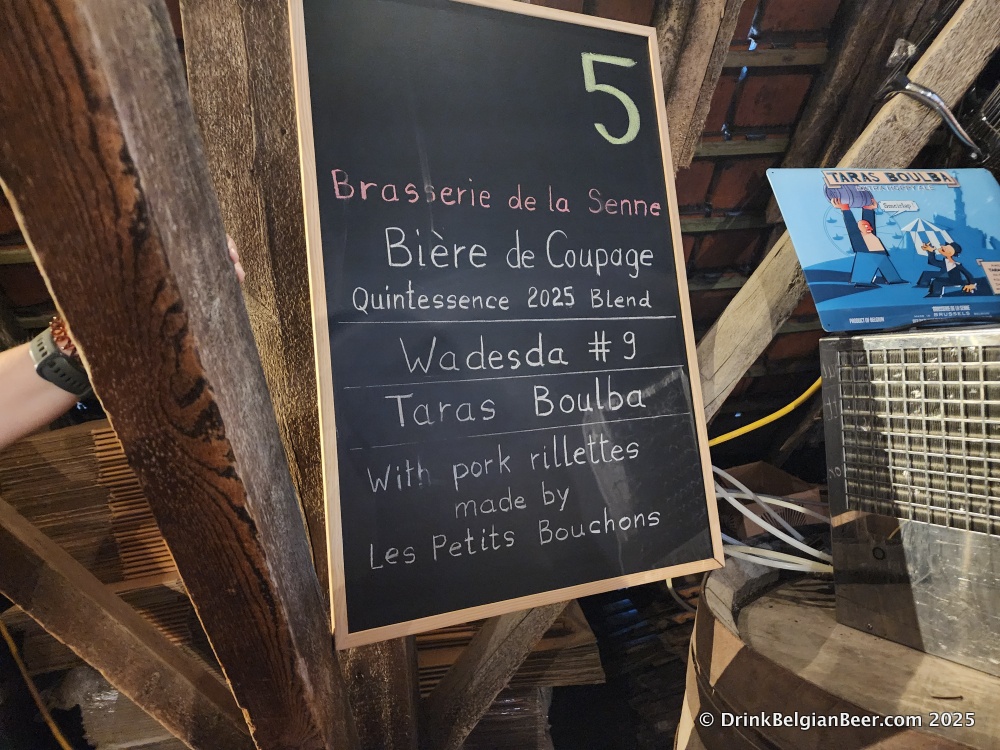 5
Brasserie de la Senne
Bière de Coupage
Quintessence 2025 Blend
Wadesda # 9
Taras Boulba
With pork rillettes
made by
Les Petits Bouchons
TARAS BOULBA
PRODUCT OF BELGIUM
BRUSSELS
© DrinkBelgianBeer.com 2025